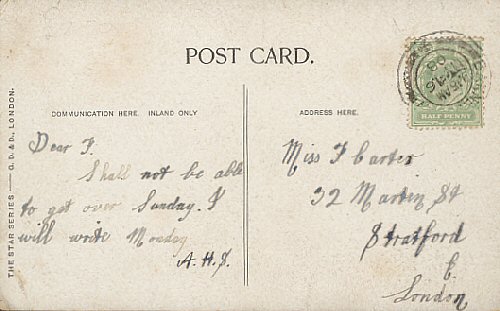 POST CARD.
THE STAR SERIES — G. D. & D., LONDON.
COMMUNICATION HERE. INLAND ONLY
Dear F.
Shall not be able
to get over Sunday. I
will write Monday
A.H.S.
ADDRESS HERE.
Miss F Carter
32 Martin St
Stratford
E.
London
HALF PENNY